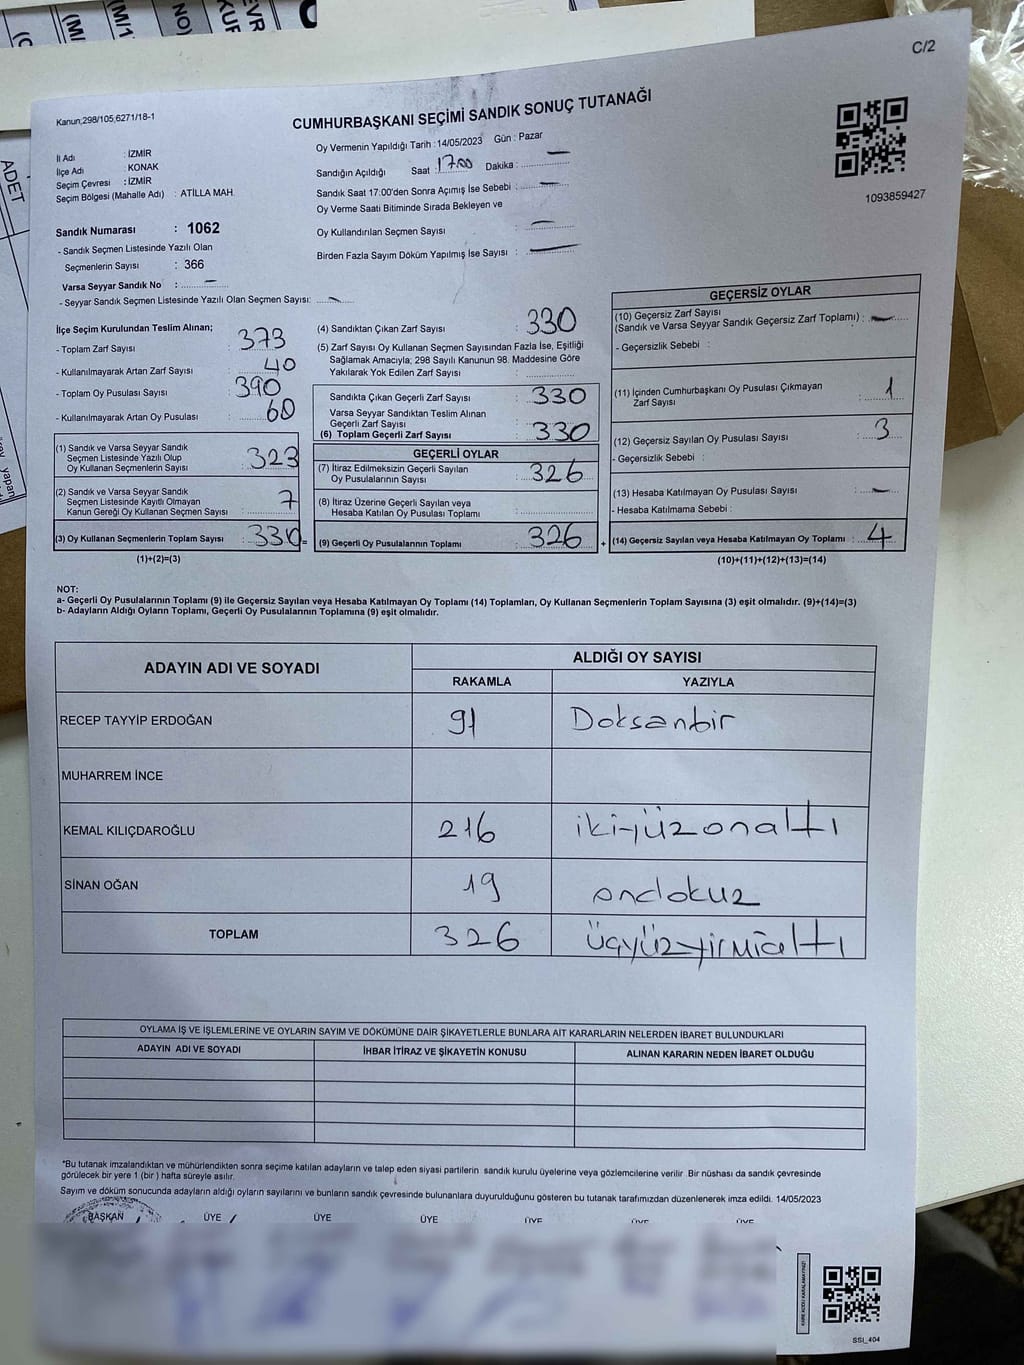 C/2
Kanun;298/105,6271/18-1
CUMHURBAŞKANI SEÇİMİ SANDIK SONUÇ TUTANAĞI
1093859427
İl Adı : İZMİR
İlçe Adı : KONAK
Seçim Çevresi : İZMİR
Seçim Bölgesi (Mahalle Adı) : ATİLLA MAH.
Sandık Numarası : 1062
- Sandık Seçmen Listesinde Yazılı Olan
Seçmenlerin Sayısı : 366
Varsa Seyyar Sandık No : —
- Seyyar Sandık Seçmen Listesinde Yazılı Olan Seçmen Sayısı: —
Oy Vermenin Yapıldığı Tarih : 14/05/2023 Gün : Pazar
Sandığın Açıldığı Saat : 17:00 Dakika : —
Sandık Saat 17:00'den Sonra Açımış İse Sebebi : —
Oy Verme Saati Bitiminde Sırada Bekleyen ve
Oy Kullandırılan Seçmen Sayısı : —
Birden Fazla Sayım Döküm Yapılmış İse Sayısı : —
İlçe Seçim Kurulundan Teslim Alınan;
- Toplam Zarf Sayısı : 373
- Kullanılmayarak Artan Zarf Sayısı : 40
- Toplom Oy Pusulası Sayısı : 390
- Kullanılmayarak Artan Oy Pusulası : 60
(1) Sandık ve Varsa Seyyar Sandık
Seçmen Listesinde Yazılı Olup
Oy Kullanan Seçmenlerin Sayısı : 323
(2) Sandık ve Varsa Seyyar Sandık
Seçmen Listesinde Kayıtlı Olmayan
Kanun Gereği Oy Kullanan Seçmen Sayısı : 7
(3) Oy Kullanan Seçmenlerin Toplam Sayısı : 330 =
(1)+(2)=(3)
(4) Sandıktan Çıkan Zarf Sayısı : 330
(5) Zarf Sayısı Oy Kullanan Seçmen Sayısından Fazla İse, Eşitliği
Sağlamak Amacıyla; 298 Sayılı Kanunun 98. Maddesine Göre
Yakılarak Yok Edilen Zarf Sayısı :
Sandıkta Çıkan Geçerli Zarf Sayısı : 330
Varsa Seyyar Sandıktan Teslim Alınan
Geçerli Zarf Sayısı :
(6) Toplam Geçerli Zarf Sayısı : 330
GEÇERLİ OYLAR
(7) İtiraz Edilmeksizin Geçerli Sayılan
Oy Pusulalarının Sayısı : 326
(8) İtiraz Üzerine Geçerli Sayılan veya
Hesaba Katılan Oy Pusulası Toplamı :
(9) Geçerli Oy Pusulalarının Toplamı : 326 +
GEÇERSİZ OYLAR
(10) Geçersiz Zarf Sayısı
(Sandık ve Varsa Seyyar Sandık Geçersiz Zarf Toplamı) : —
- Geçersizlik Sebebi :
(11) İçinden Cumhurbaşkanı Oy Pusulası Çıkmayan
Zarf Sayısı : 1
(12) Geçersiz Sayılan Oy Pusulası Sayısı : 3
- Geçersizlik Sebebi :
(13) Hesaba Katılmayan Oy Pusulası Sayısı : —
- Hesaba Katılmama Sebebi :
(14) Geçersiz Sayılan veya Hesaba Katılmayan Oy Toplamı : 4
(10)+(11)+(12)+(13)=(14)
NOT:
a- Geçerli Oy Pusulalarının Toplamı (9) ile Geçersiz Sayılan veya Hesaba Katılmayan Oy Toplamı (14) Toplamları, Oy Kullanan Seçmenlerin Toplam Sayısına (3) eşit olmalıdır. (9)+(14)=(3)
b- Adayların Aldığı Oyların Toplamı, Geçerli Oy Pusulalarının Toplamına (9) eşit olmalıdır.
ADAYIN ADI VE SOYADI ALDIĞI OY SAYISI
RAKAMLA YAZIYLA
RECEP TAYYİP ERDOĞAN 91 Doksanbir
MUHARREM İNCE
KEMAL KILIÇDAROĞLU 216 ikiyüzonaltı
SİNAN OĞAN 19 ondokuz
TOPLAM 326 üçyüzyirmialtı
OYLAMA İŞ VE İŞLEMLERİNE VE OYLARIN SAYIM VE DÖKÜMÜNE DAİR ŞİKAYETLERLE BUNLARA AİT KARARLARIN NELERDEN İBARET BULUNDUKLARI
ADAYIN ADI VE SOYADI İHBAR İTİRAZ VE ŞİKAYETİN KONUSU ALINAN KARARIN NEDEN İBARET OLDUĞU
*Bu tutanak imzalandıktan ve mühürlendikten sonra seçime katılan adayların ve talep eden siyasi partilerin sandık kurulu üyelerine veya gözlemcilerine verilir .Bir nüshası da sandık çevresinde
görülecek bir yere 1 (bir) hafta süreyle asılır.
Sayım ve döküm sonucunda adayların aldığı oyların sayılarını ve bunların sandık çevresinde bulunanlara duyurulduğunu gösteren bu tutanak tarafımızdan düzenlenerek imza edildi. 14/05/2023
BAŞKAN ÜYE ÜYE ÜYE ÜYE ÜYE ÜYE
SSI_404
ADET